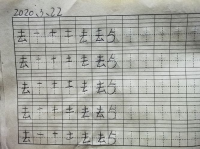 2020.3.22
去一十土去去与
去一十土去去与
去一十土去去与
去一十土去去与
去一十土去去与